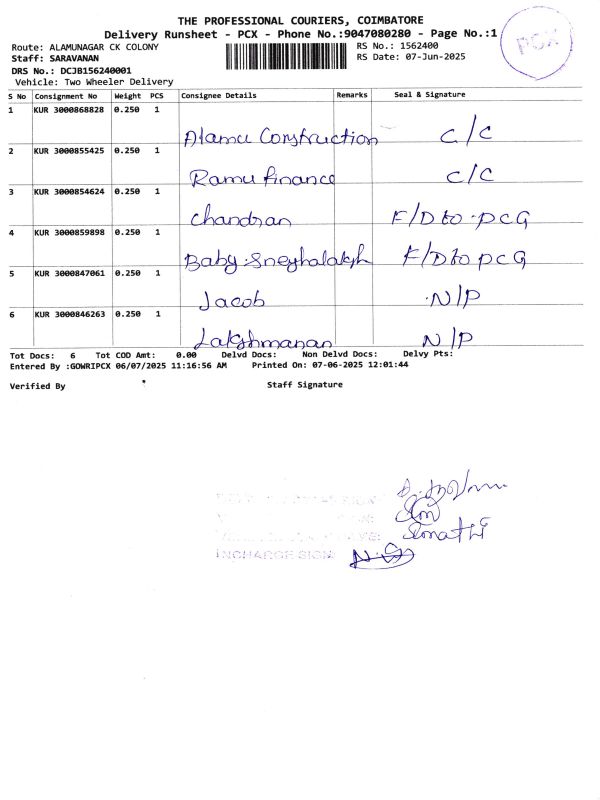 THE PROFESSIONAL COURIERS, COIMBATORE
Delivery Runsheet - PCX - Phone No.:9047080280 - Page No.:1
Route: ALAMUNAGAR CK COLONY RS No.: 1562400
Staff: SARAVANAN RS Date: 07-Jun-2025
DRS No.: DCJB156240001
Vehicle: Two Wheeler Delivery
PCX
S No Consignment No Weight PCS Consignee Details Remarks Seal & Signature
1 KUR 3000868828 0.250 1 Alamu Construction C/C
2 KUR 3000855425 0.250 1 Ramu finance C/C
3 KUR 3000854624 0.250 1 Chandran F/D to PCG
4 KUR 3000859898 0.250 1 Baby. F/D to PCG
5 KUR 3000847061 0.250 1 Jacob N/P
6 KUR 3000846263 0.250 1 Lakshmanan N/P
Tot Docs: 6 Tot COD Amt: 0.00 Delvd Docs: Non Delvd Docs: Delvy Pts:
Entered By :GOWRIPCX 06/07/2025 11:16:56 AM Printed On: 07-06-2025 12:01:44
Verified By Staff Signature
INCHARGE SIGN: